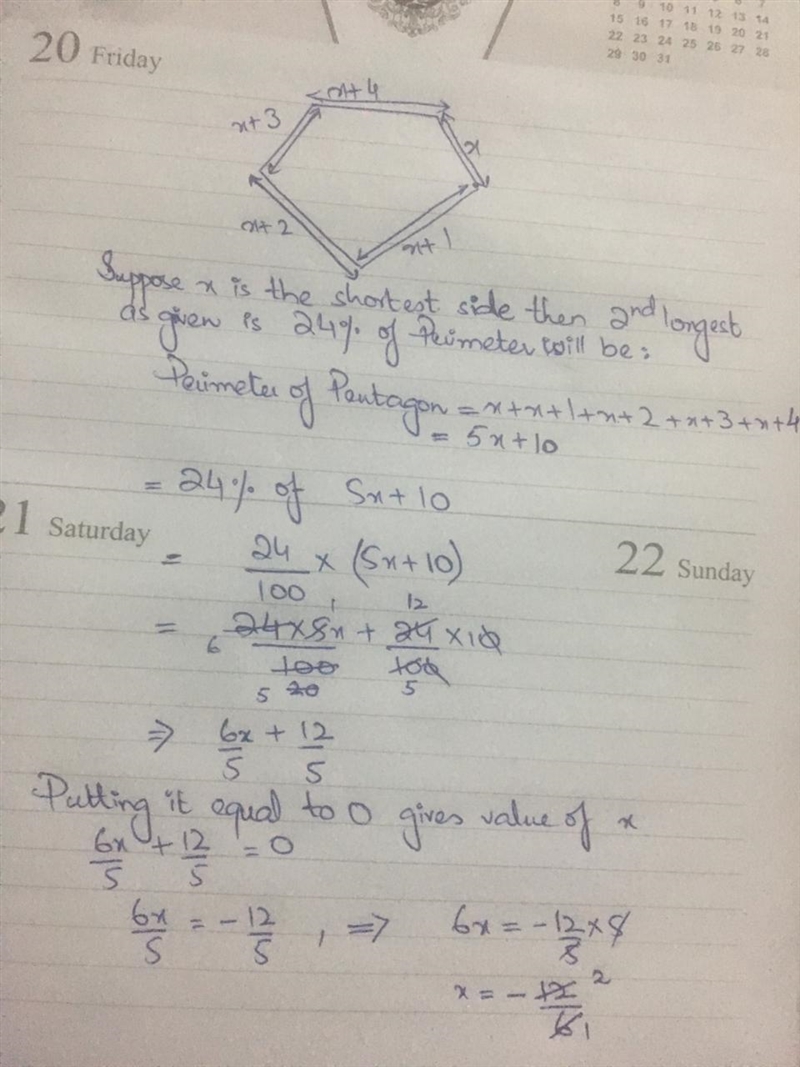 8 9 10 11 12 13 14
15 16 17 18 19 20 21
22 23 24 25 26 27 28
29 30 31
20 Friday
x+4
x+3
x
x+2
x+1
Suppose x is the shortest side then 2nd longest
as given is 24% of Perimeter will be:
Perimeter of Pentagon = x+x+1+x+2+x+3+x+4
= 5x+10
= 24% of 5x+10
21 Saturday
22 Sunday
= 24/100 × (5x+10)
= 6 24×5x/100 1 5 20 + 12 24/100 5 ×10
⇒ 6x/5 + 12/5
Putting it equal to 0 gives value of x
6x/5 + 12/5 = 0
6x/5 = -12/5 , ⇒ 6x = -12/5 × 5
x = -12/6 2 1